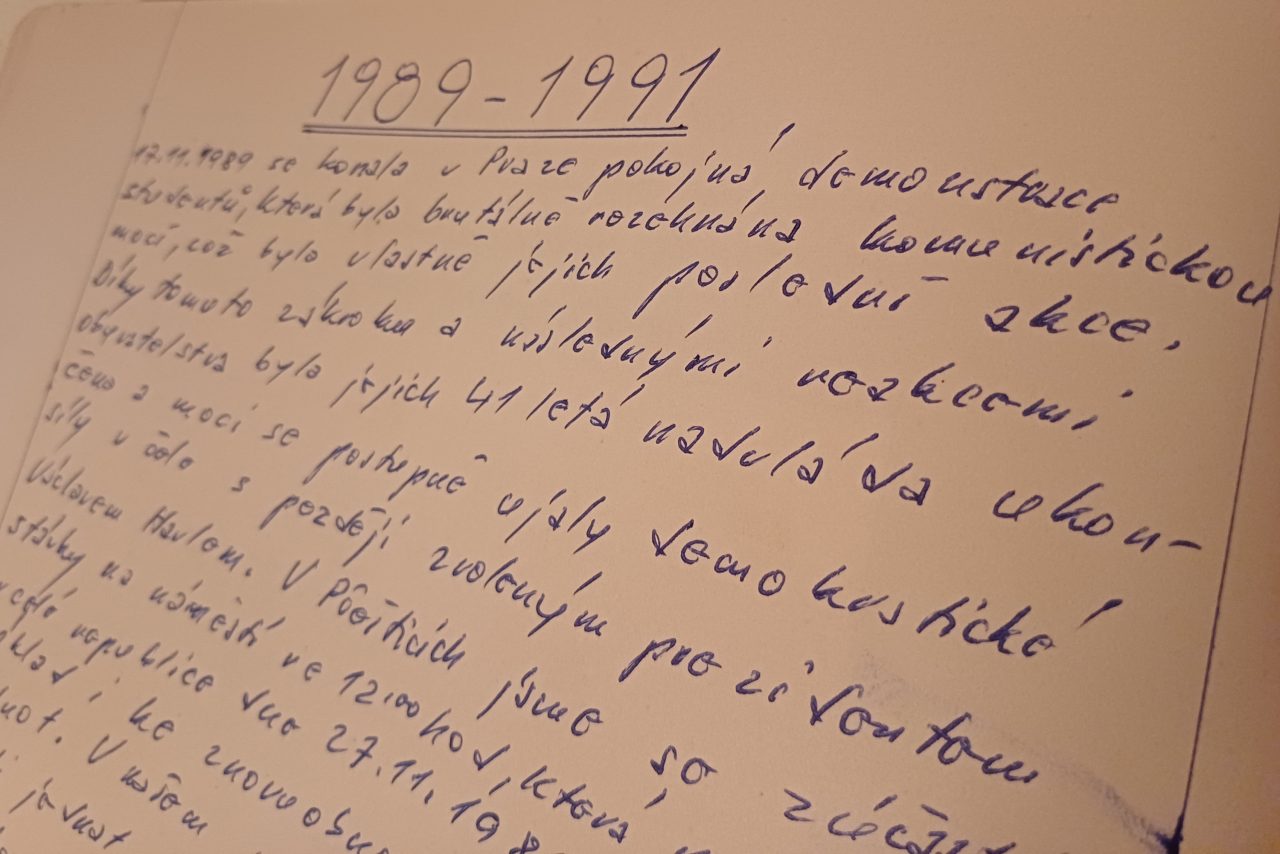 1989-1991
17.11.1989 se konala v Praze pokojná demonstrace
studentů, která byla brutálně rozehnána komunistickou
mocí, což byla vlastně jejich poslední akce.
Díky tomuto zákroku a následnými reakcemi
obyvatelstva byla jejich 41 letá nadvláda ukon-
čena a moci se postupně ujaly demokratické
síly v čele s později zvoleným prezidentem
Václavem Havlem. V jsme se
stávky na náměstí ve 12.00 hod, která
celé republice dne 27.11.19
i ke znovuobno
V našem
jednat